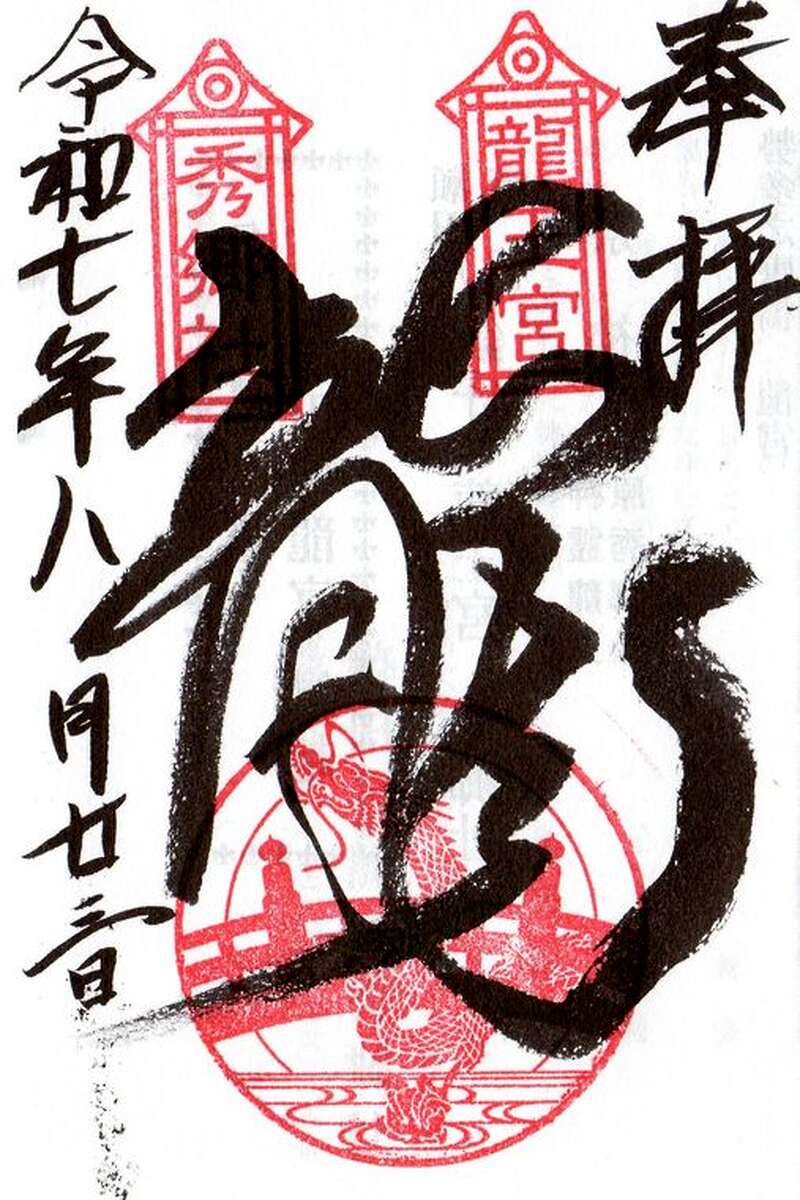 奉拝
龍王宮
龍
秀郷社
令和七年八月廿三日